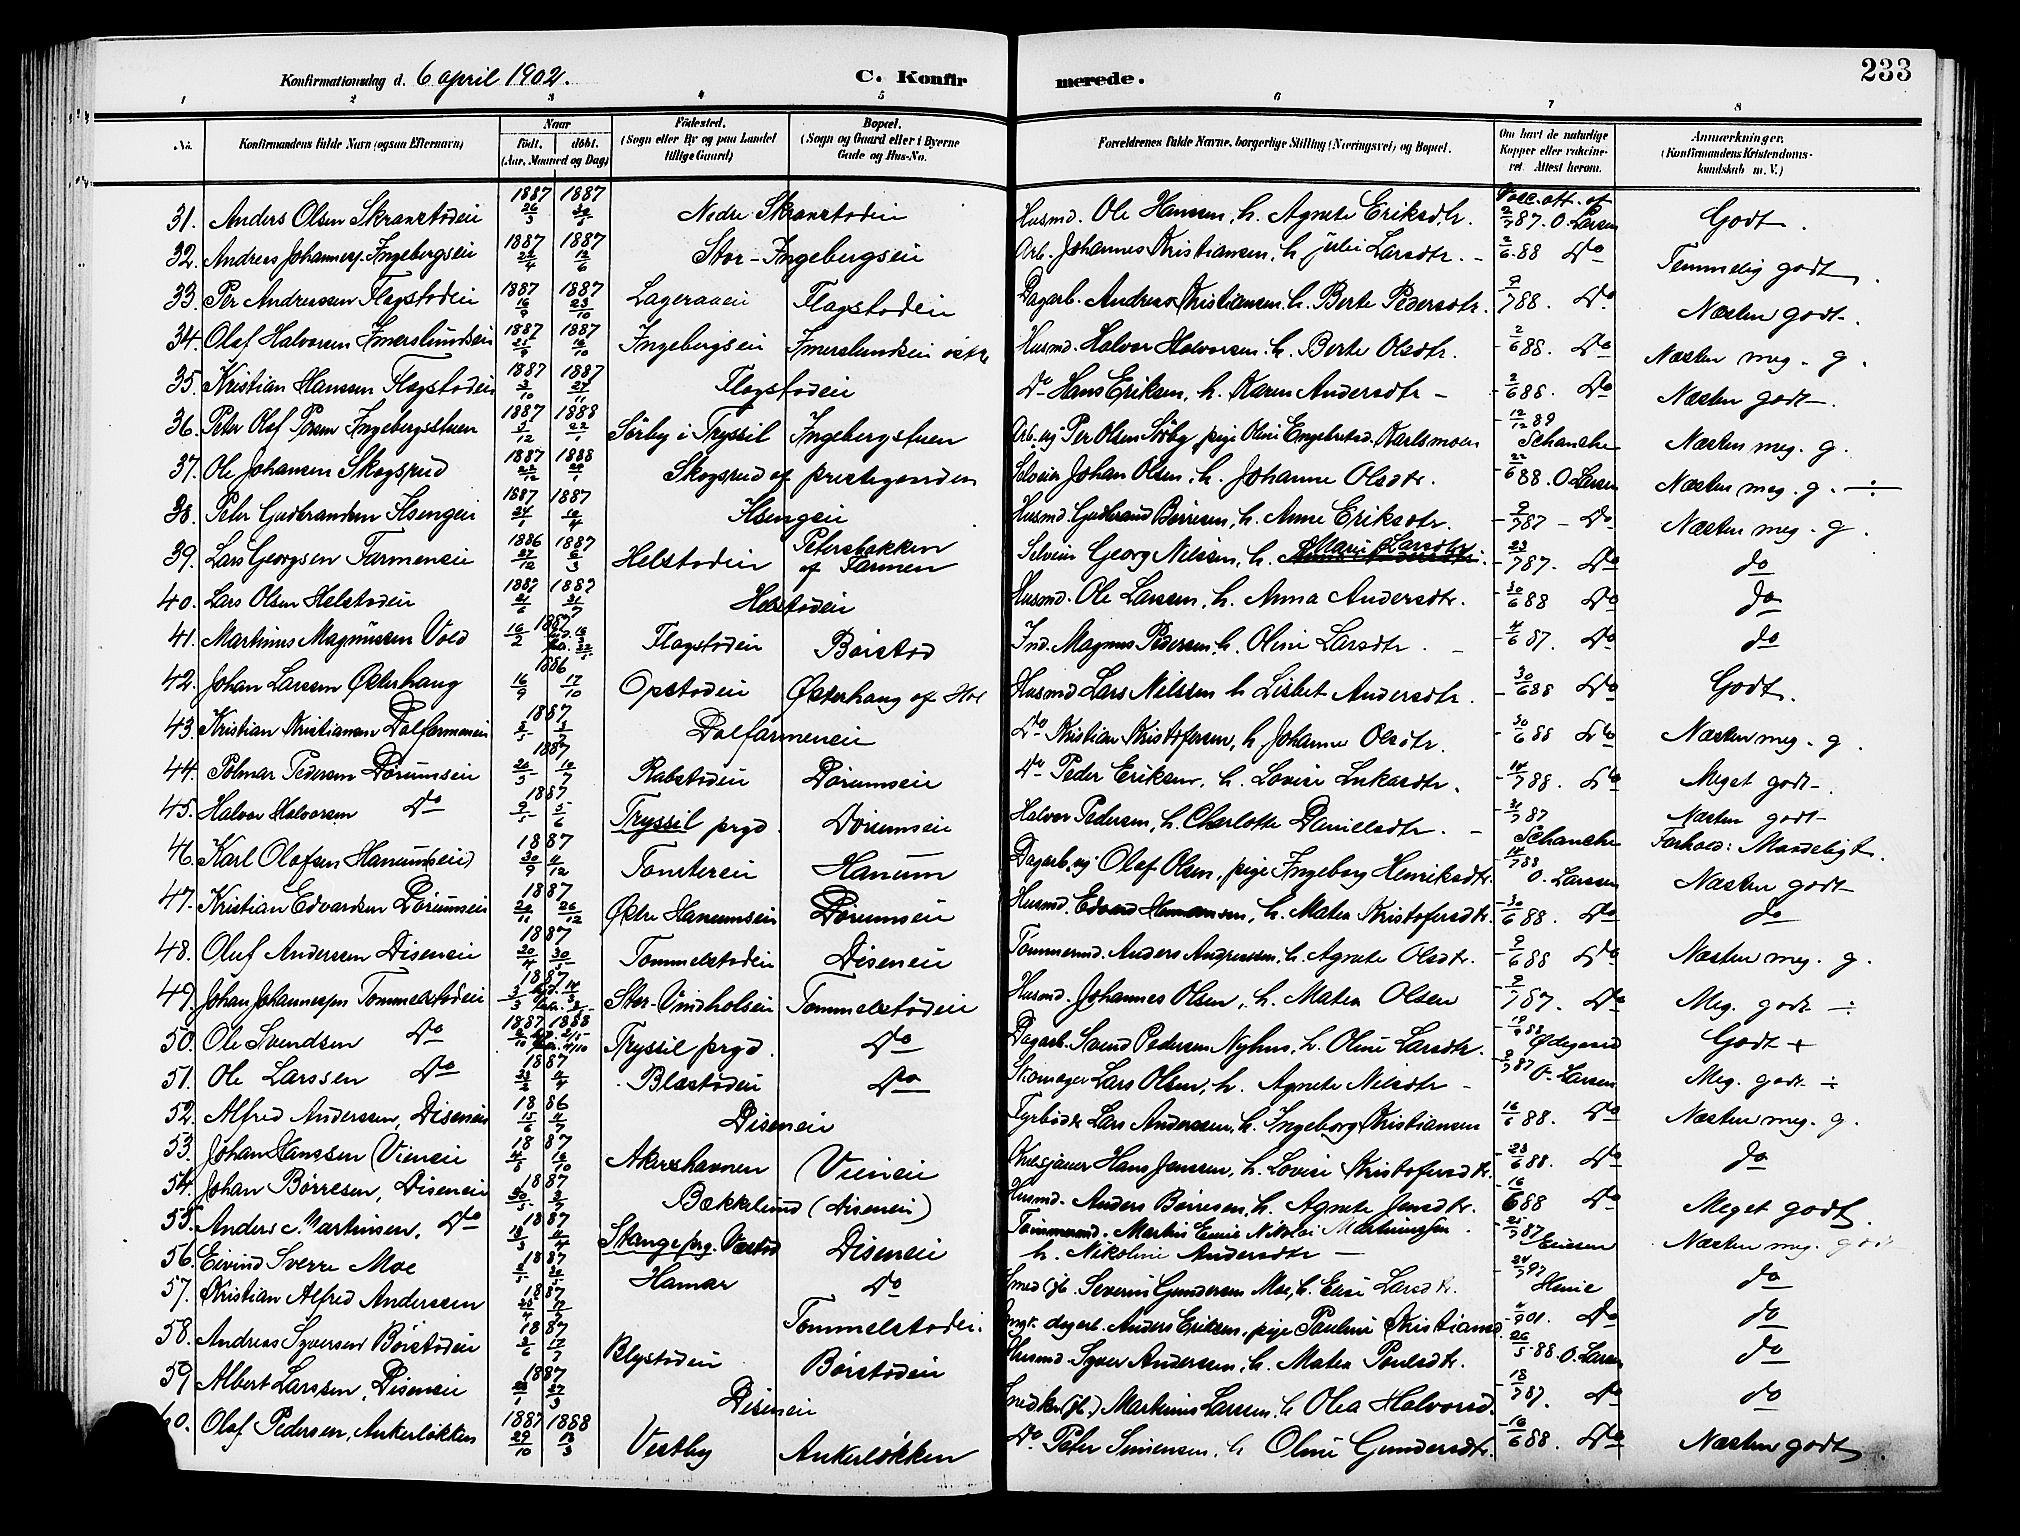 Konfirmationsdag d. 6 april 1902. C. Konfirmerede. 233
1 2 3 4 5 6 7 8
No. Konfirmandens fulde Navn (ogsaa Efternavn) Naar Født. døbt. (Aar, Maaned og Dag) Fødested. (Sogn eller By og paa Landet tillige Gaard) Bopæl. (Sogn og Gaard eller i Byerne Gade og Hus-No. Forældrenes fulde Navne, borgerlige Stilling (Næringsvei) og Bopæl. Om havt de naturlige Kopper eller vakcineret. Attest herom. Anmærkninger. (Konfirmandens Kristendomskundskab m. V.)
31. Anders Olsen 1887 26/3 1887 30/5 Nedre Husmd. Ole Hansen, h. Agnete Eriksdtr. 87. O. Larsen Godt.
32. Andreas Johannes. Ingebergseie 1887 22/4 1887 12/6 Stor-Ingebergseie Arb. Johannes Kristiansen, h. Julie Larsdtr. 2/6 88 Do Temmelig godt.
33. Per Andreassen Flagstadeie 1887 16/9 1887 23/10 Lageraaeie Flagstadeie Dagarb. Andreas Kristiansen, h. Berte Pedersdtr. 9/7 88. Do Næsten godt.
34. Olaf Halvorsen Imerslundseie 1887 25/9 1887 16/10 Ingebergseie Imerslundseie østre Husmd. Halvor Halvorsen, h. Berte Olsdtr. 2/6 88. Do Næsten meg. g.
35. Kristian Hanssen Flagstadeie 1887 3/10 1887 27/11 Flagstadeie Do Hans Eriksen, h. Karen Andersdtr. 2/6 88. Do Næsten godt.
36. Peter Olaf Persen Ingebergstuen 1887 3/12 1888 22/1 Sørby i Tryssil Ingebergstuen Arb. ug. Per Olsen Sørby, pige Oline Engebretsd. Karlsmoen 12/12 89 Schanche Næsten meg. g.
37. Ole Johansen Skogsrud 1887 22/12 1888 29/1 Skogsrud af prestegaarden Selveier Johan Olsen, h. Johanne Olsdtr. 22/6 88. O Larsen Næsten meg. g. ÷
38. Peter Gudbrandsen Ilsengeie 1887 24/1 1887 10/4 Ilsengeie Husmd. Gudbrand Børresen, h. Anne Eriksdtr. 9/7 87 Do Næsten meg. g.
39. Lars Georgsen Farmeneie 1886 27/12 1887 6/3 Helstadeie Petersbakken af Farmen Selveier Georg Nilssen, h. Marie Larsdtr. 23/7 87. Do do
40. Lars Olsen Helstadeie 1887 21/6 31/7 Helstadeie Husmd. Ole Larsen, h. Anna Andersdtr. 30/6 88 Do do
41. Martinus Magnussen Vold 1887 16/2 Flagstadeie Børstad Ind. Magnus Pedersen, h. Oline Larsdtr. 4/6 87. Do do
42. Johan Larssen Østerhaug 1886 16/9 17/10 Opstadeie Østerhaug af Hol Husmd Lars Nilssen, h. Lisbet Andersdtr. 30/6 88 Do Godt.
43. Kristian Kristiansen Dalfarmeneie 1887 Dalfarmeneie Do Kristian Kristofersen, h. Johanne Olsdtr. 30/6 88 Do Næsten meg. g.
44. Polmar Pedersen Dørumseie 1887 10/7 Rabstadeie Dørumseie Do Peder Eriksen, h. Lovise Lukasdtr. 14/7 88. Do Meget godt.
45. Halvor Halvorsen Do 1887 9/5 5/6 Tryssil prgd. Dørumseie Halvor Pedersen, h. Charlotte Danielsdtr. 31/7 87 Schanche Næsten godt Forhold: Maadeligt.
46. Karl Olafsen Hanumseie 1887 30/9 4/12 Tomtereie Hanum Dagarb. ug. Olaf Olsen, pige Ingeborg Henriksdtr. 14/7 88 O. Larssen Næsten godt
47. Kristian Edvardsen Dørumseie 1887 20/11 26/12 Østre Hanumseie Dørumseie Husmd. Edvard Hermansen, h. Matea Kristofersdtr. 30/6 88. Do do
48. Oluf Anderssen Diseneie 1887 20/4 30/5 Tommelstadeie Diseneie Tømmermd. Anders Andreassen, h. Agnete Olsdtr. 9/6 88 Do Næsten meg. g.
49. Johan Johannessen Tommelstadeie 1887 3/3 Stor-Vindholseie Tommelstadeie Husmd. Johannes Olsen, h. Matea Olsen 2/7 87. Do Meg. godt ÷
50. Ole Svendsen Do 1887 1888 Tryssil prgd. Do Dagarb. Svend Pedersen Nyhus, h. Oline Larsdtr. 88 Ødegaard Godt +
51. Ole Larssen Do 1887 Blæstadeie Do Skomager Lars Olsen, h. Agnete Nilsdtr 87 O. Larsen Meg. godt ÷
52. Alfred Anderssen, Diseneie 1886 15/6 4/7 Diseneie Fyrbøder Lars Anderssen, h. Ingeborg Kristiansen 16/6 88. Do Næsten meg. g.
53. Johan Hanssen Vieneie 1887 4/8 16/10 Akershavnen Vieneie Hans Jenssen, h. Lovise Kristofersdtr. 23/6 88. Do do
54. Johan Børresen, Diseneie 1887 Bækkelund (Diseneie) Husmd. Anders Børresen, h. Agnete Jensdtr. 16/6 88 Do Meget godt.
55. Anders Martinsen, Do 1887 Stange prg. Diseneie Tømmermd. Martin Nikolai h. Nikoline Andersdtr 87 Næsten meg. godt
56. Eivind Sverre Moe 1887 Hamar Do Smed Severin Gundersen Moe, h. Elise Larsdtr. 97 do
57. Kristian Alfred Anderssen 1887 Tommelstadeie dagarb. Anders Eriksen, pige Pauline Kristiansd. 01. Do do
58. Andreas Syversen Børstadeie 1887 Blystadeie Børstadeie Husmd. Syver Anderssen, h. Matea Poulsdtr. 26/5 88. O. Larsen do
59. Albert Larssen, Diseneie 1887 27/3 Diseneie Snedker Martinius Larssen, h. Olea Halvorsd. 18/7 87. Do do
60. Olaf Pedersen, Ankerløkken 1887 29/10 1888 18/3 Vestby Ankerløkken Do Peter Simensen, h. Oline Gundersdtr. 16/6 88. Do Næsten godt